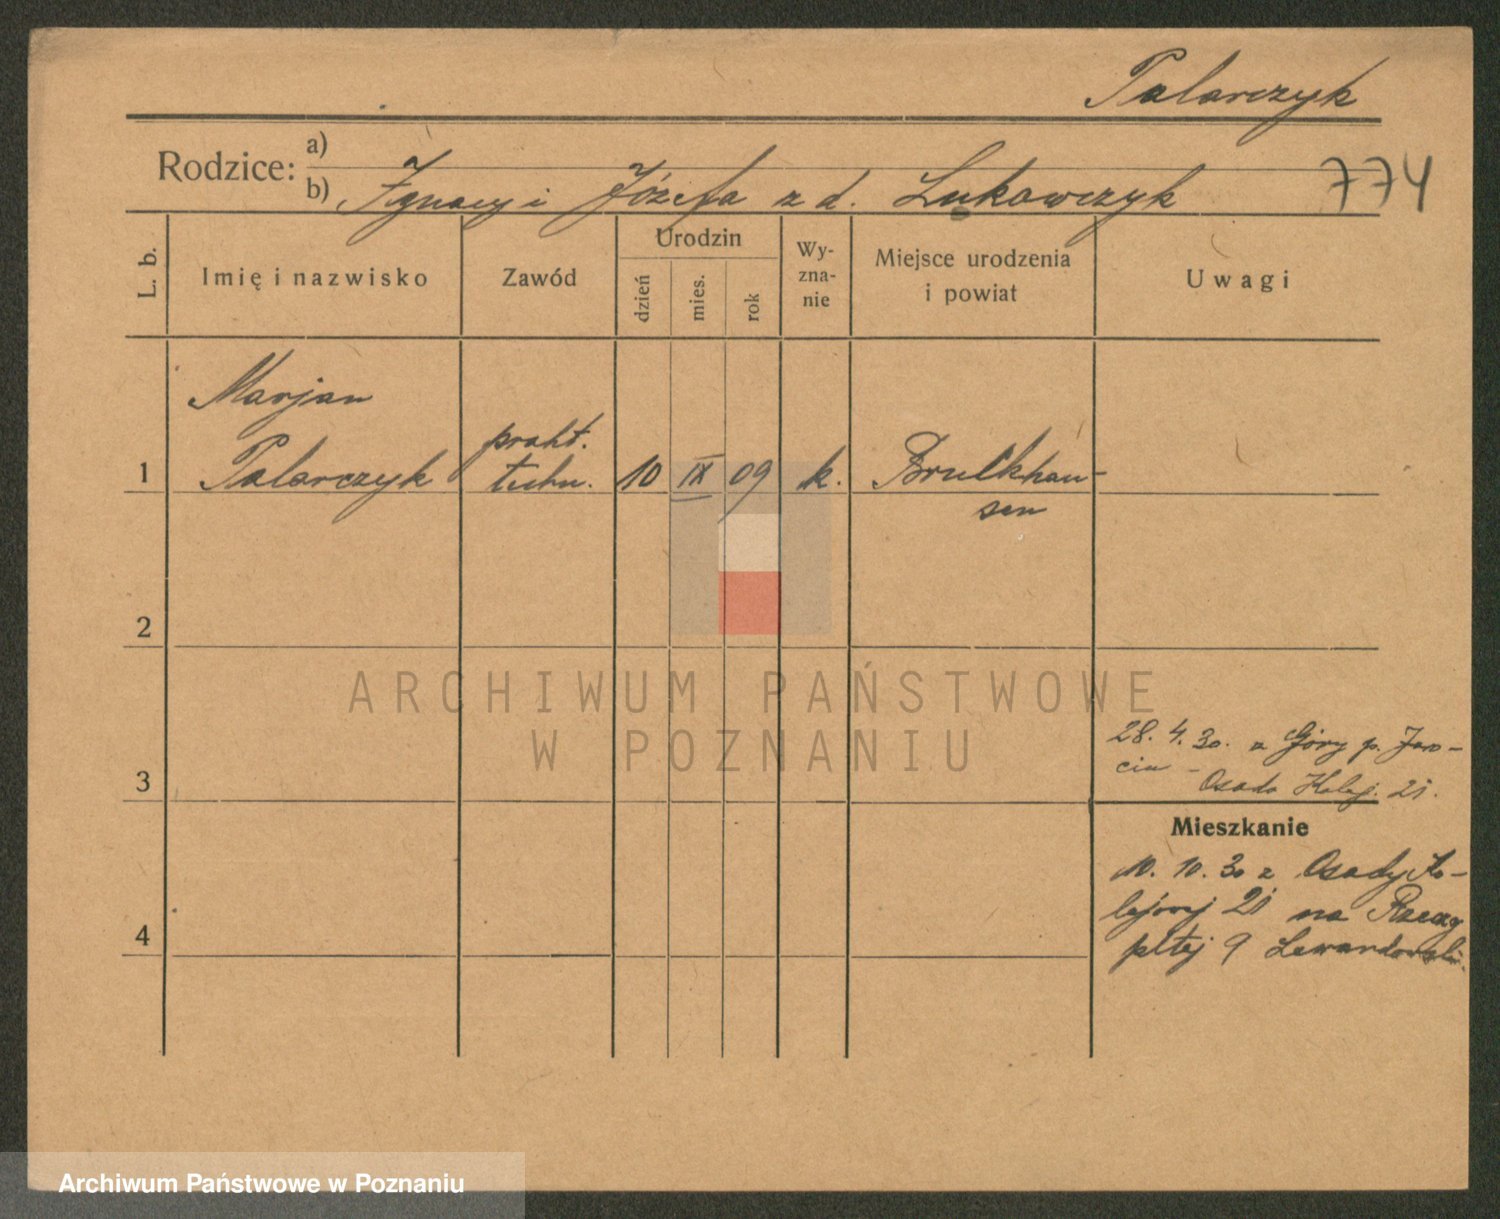 Palarczyk
Rodzice: a)
b) Ignacy i Józefa z d. Łukawczyk
774
L. b.
Imię i nazwisko
Zawód
Urodzin
dzień
mies.
rok
Wy-
zna-
nie
Miejsce urodzenia
i powiat
Uwagi
Marjan
1 Palarczyk
prakt.
techn.
10 IX 09 k.
Bruckhau-
sen
2
3
28. 4. 30. z Góry p. Jaro-
cin -
Osada Kolej. 21.
Mieszkanie
10. 10. 30 z Osady Ko-
lejowej 21 na Rzeczy
pltej 9 Lewandowski
4
ARCHIWUM PAŃSTWOWE
W POZNANIU
Archiwum Państwowe w Poznaniu